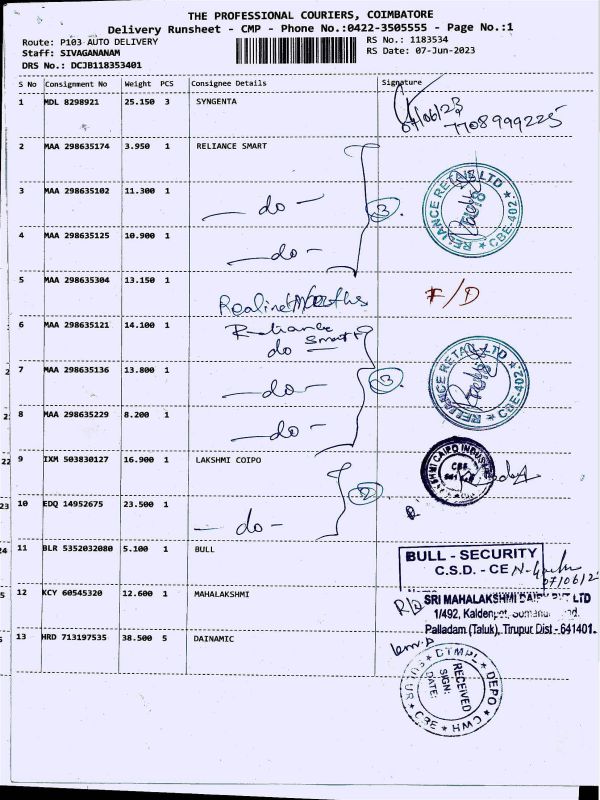 THE PROFESSIONAL COURIERS, COIMBATORE
Delivery Runsheet - CMP - Phone No.:0422-3505555 - Page No.:1
Route: P103 AUTO DELIVERY RS No.: 1183534
Staff: SIVAGANANAM RS Date: 07-Jun-2023
DRS No.: DCJB118353401
S No Consignment No Weight PCS Consignee Details Signature
1 MDL 8298921 25.150 3 SYNGENTA
07/06/23
7708999225
2 MAA 298635174 3.950 1 RELIANCE SMART
3 MAA 298635102 11.300 1 do 3
RELIANCE RETAIL LTD CBE-402
4 MAA 298635125 10.900 1 do
5 MAA 298635304 13.150 1 F/D
6 MAA 298635121 14.100 1 Reliance Smart
do
7 MAA 298635136 13.800 1 do 3
RELIANCE RETAIL LTD CBE-402
8 MAA 298635229 8.200 1 do
22 9 IXM 503830127 16.900 1 LAKSHMI COIPO
23 10 EDQ 14952675 23.500 1 do 2
24 11 BLR 5352032080 5.100 1 BULL
BULL - SECURITY
C.S.D. - CE
07/06/2
12 KCY 60545320 12.600 1 MAHALAKSHMI
SRI MAHALAKSHMI PVT LTD
1/492,
Palladam (Taluk), Tirupur Dist - 641401.
13 HRD 713197535 38.500 5 DAINAMIC
DTMPL DEPO CWH CBE SULUR
RECEIVED
SIGN:
DATE: